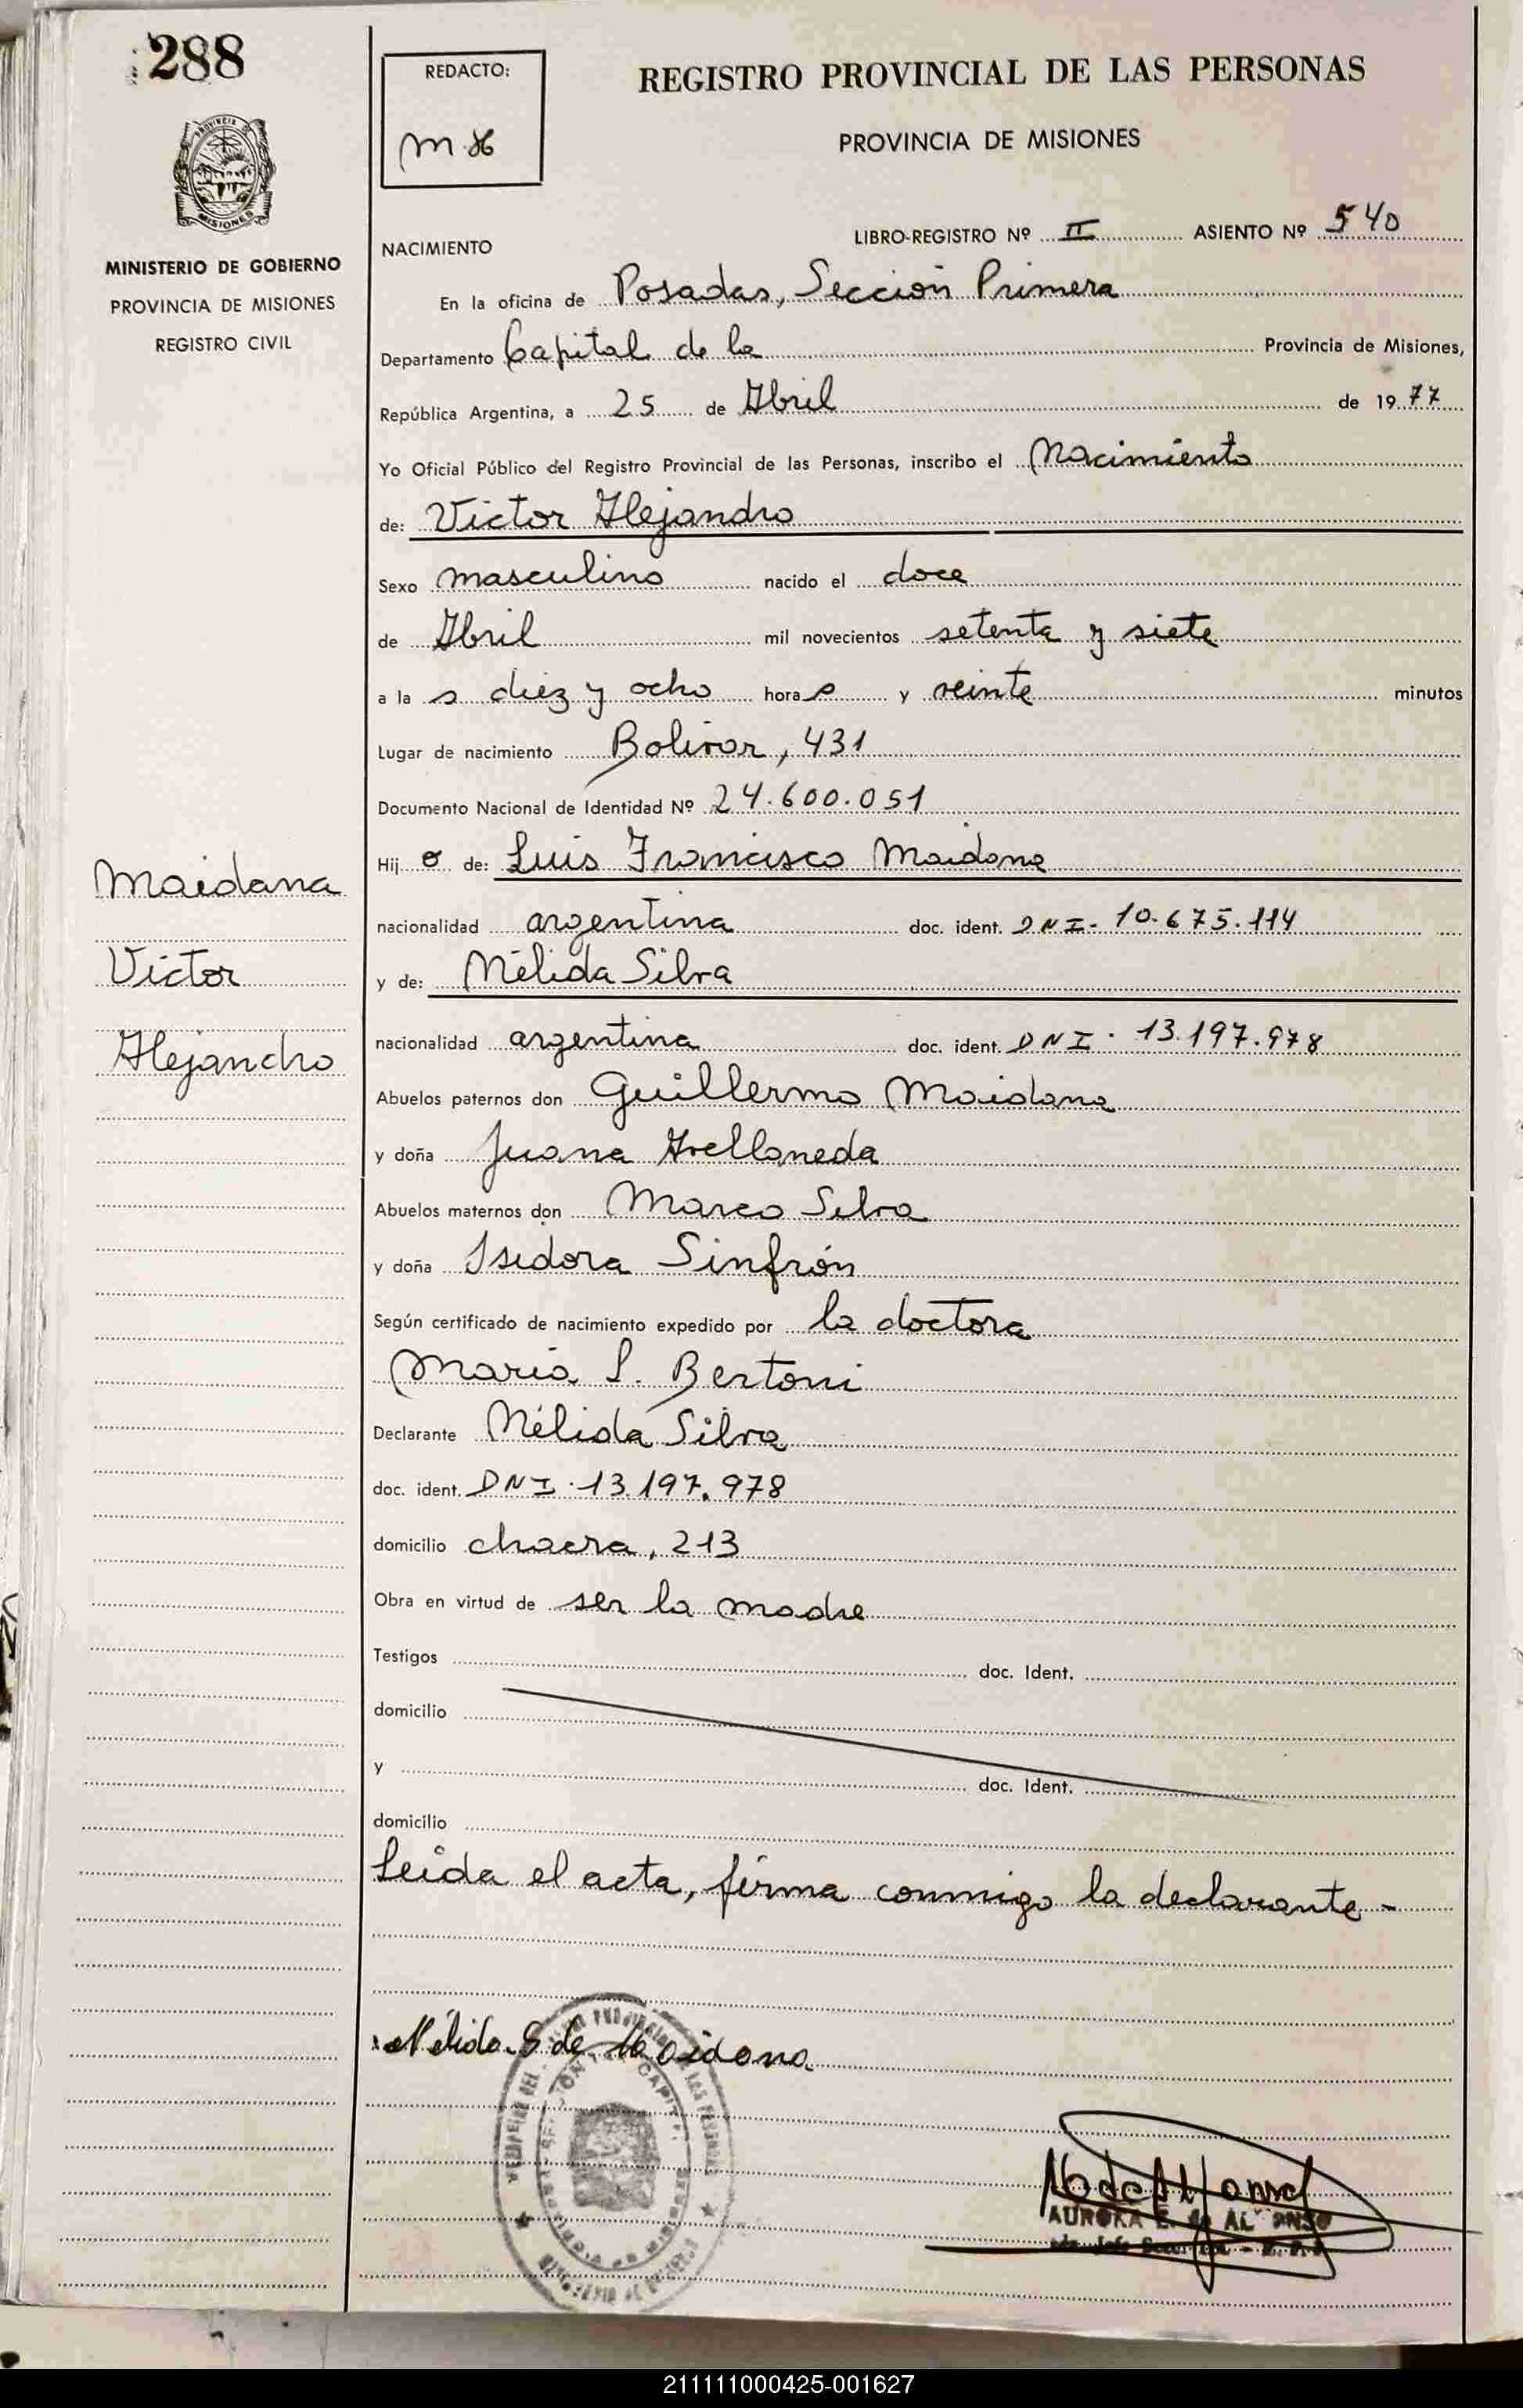 288
MINISTERIO DE GOBIERNO
PROVINCIA DE MISIONES
REGISTRO CIVIL
Maidana
Victor
Alejandro
REDACTO:
REGISTRO PROVINCIAL DE LAS PERSONAS
PROVINCIA DE MISIONES
NACIMIENTO
LIBRO-REGISTRO Nº II ASIENTO Nº 540
En la oficina de Posadas, Sección Primera
Departamento Capital de la Provincia de Misiones,
República Argentina, a 25 de Abril de 1977
Yo Oficial Público del Registro Provincial de las Personas, inscribo el Nacimiento
de: Victor Alejandro
Sexo masculino nacido el doce
de Abril mil novecientos setenta y siete
a las diez y ocho horas y veinte minutos
Lugar de nacimiento Bolivar, 431
Documento Nacional de Identidad Nº 24.600.051
Hijo de: Luis Francisco Maidana
nacionalidad argentina doc. ident. DNI- 10.675.114
y de: Nélida Silva
nacionalidad argentina doc. ident. DNI. 13.197.978
Abuelos paternos don Guillermo Maidana
y doña Juana Avellaneda
Abuelos maternos don Marco Silva
y doña Isidora Sinfrón
Según certificado de nacimiento expedido por la doctora
María S. Bertoni
Declarante Nélida Silva
doc. ident. DNI. 13.197.978
domicilio chacra, 213
Obra en virtud de ser la madre
Testigos doc. Ident.
domicilio
y doc. Ident.
domicilio
Leida el acta, firma conmigo la declarante-
Nélida S de Maidana
AURORA E. de ALFONSO
211111000425-001627